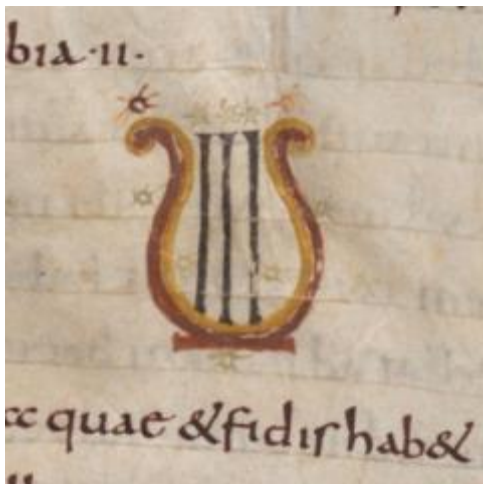 bia·ii·
quae &fidis hab&